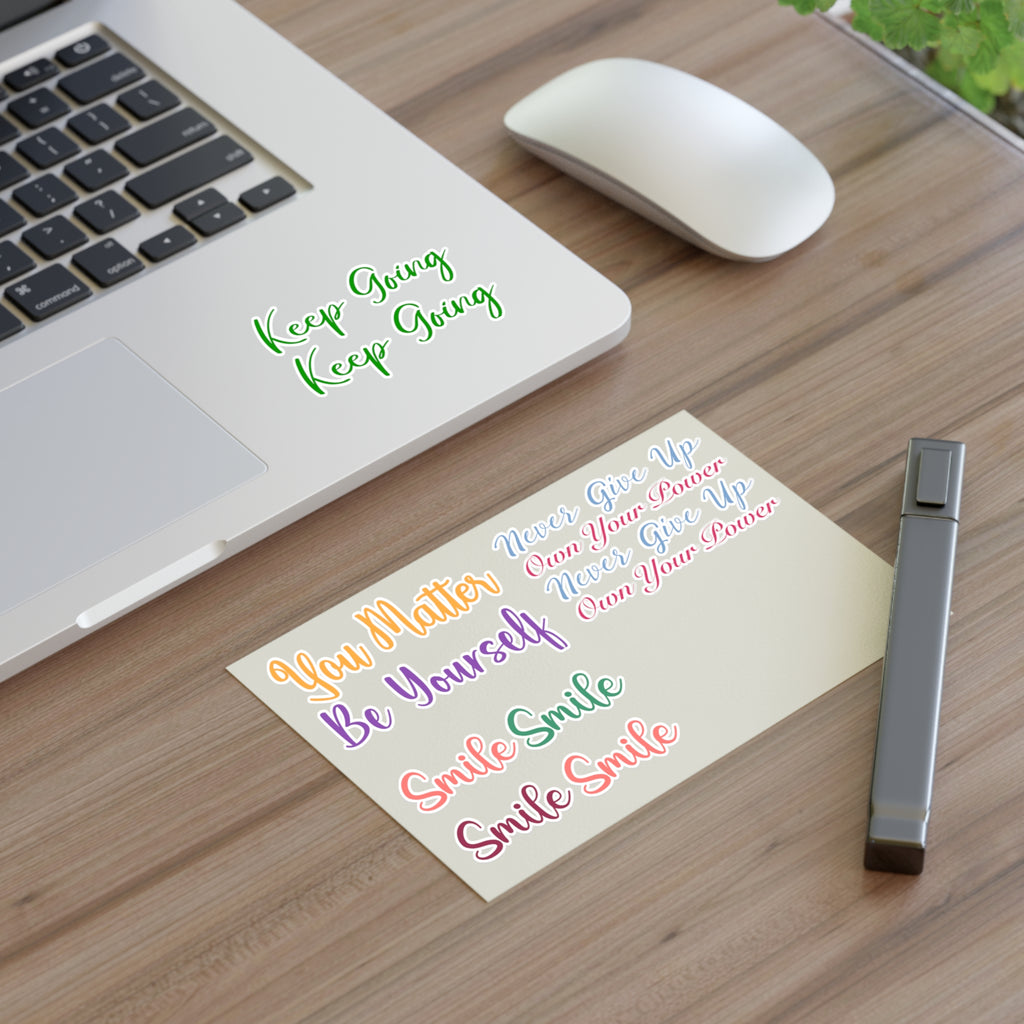 delete
return
option
⌘
command
Keep Going
Keep Going
Never Give Up
Own Your Power
Never Give Up
Own Your Power
You Matter
Be Yourself
Smile Smile
Smile Smile